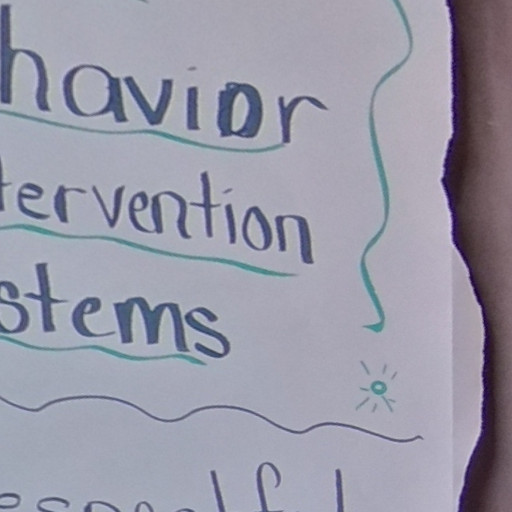 havior
tervention
stems